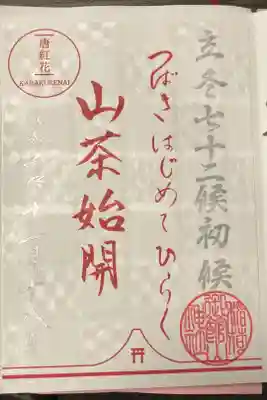 立冬七十二候初候
つばきはじめてひらく
山茶始開
唐紅花
KARAKURENAI